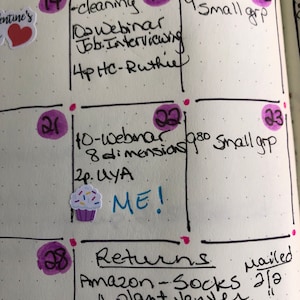 entine's
14
-cleaning
10a Webinar
Job Interviewing
4p HC-Ruthie
9 Small grp
21
22
10-Webinar
8 dimensions
2p. UYA
ME!
23
980 Small grp
28
Returns
Amazon - Socks
Mailed
2/2